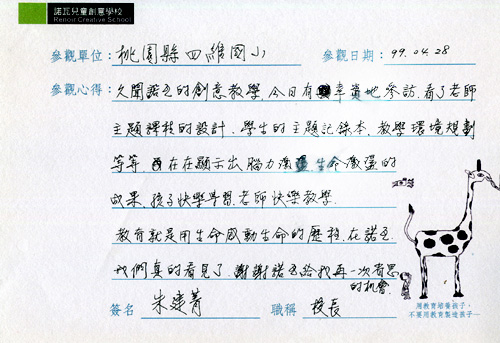 諾瓦兒童創意學校
Renoir Creative School
參觀單位：桃園縣四維國小 參觀日期：99.04.28
參觀心得：久聞諾瓦的創意教學，今日有幸實地參訪，看了老師
主題課程的設計、學生的主題記錄本、教學環境規劃
等等，在在顯示出腦力激盪、生命激盪的
成果，孩子快樂學習，老師快樂教學。
教育就是用生命感動生命的歷程，在諾瓦
我們真的看見了，謝謝諾瓦給我再一次省思
的機會。
簽名 朱建菁 職稱 校長
用教育培養孩子，
不要用教育製造孩子─